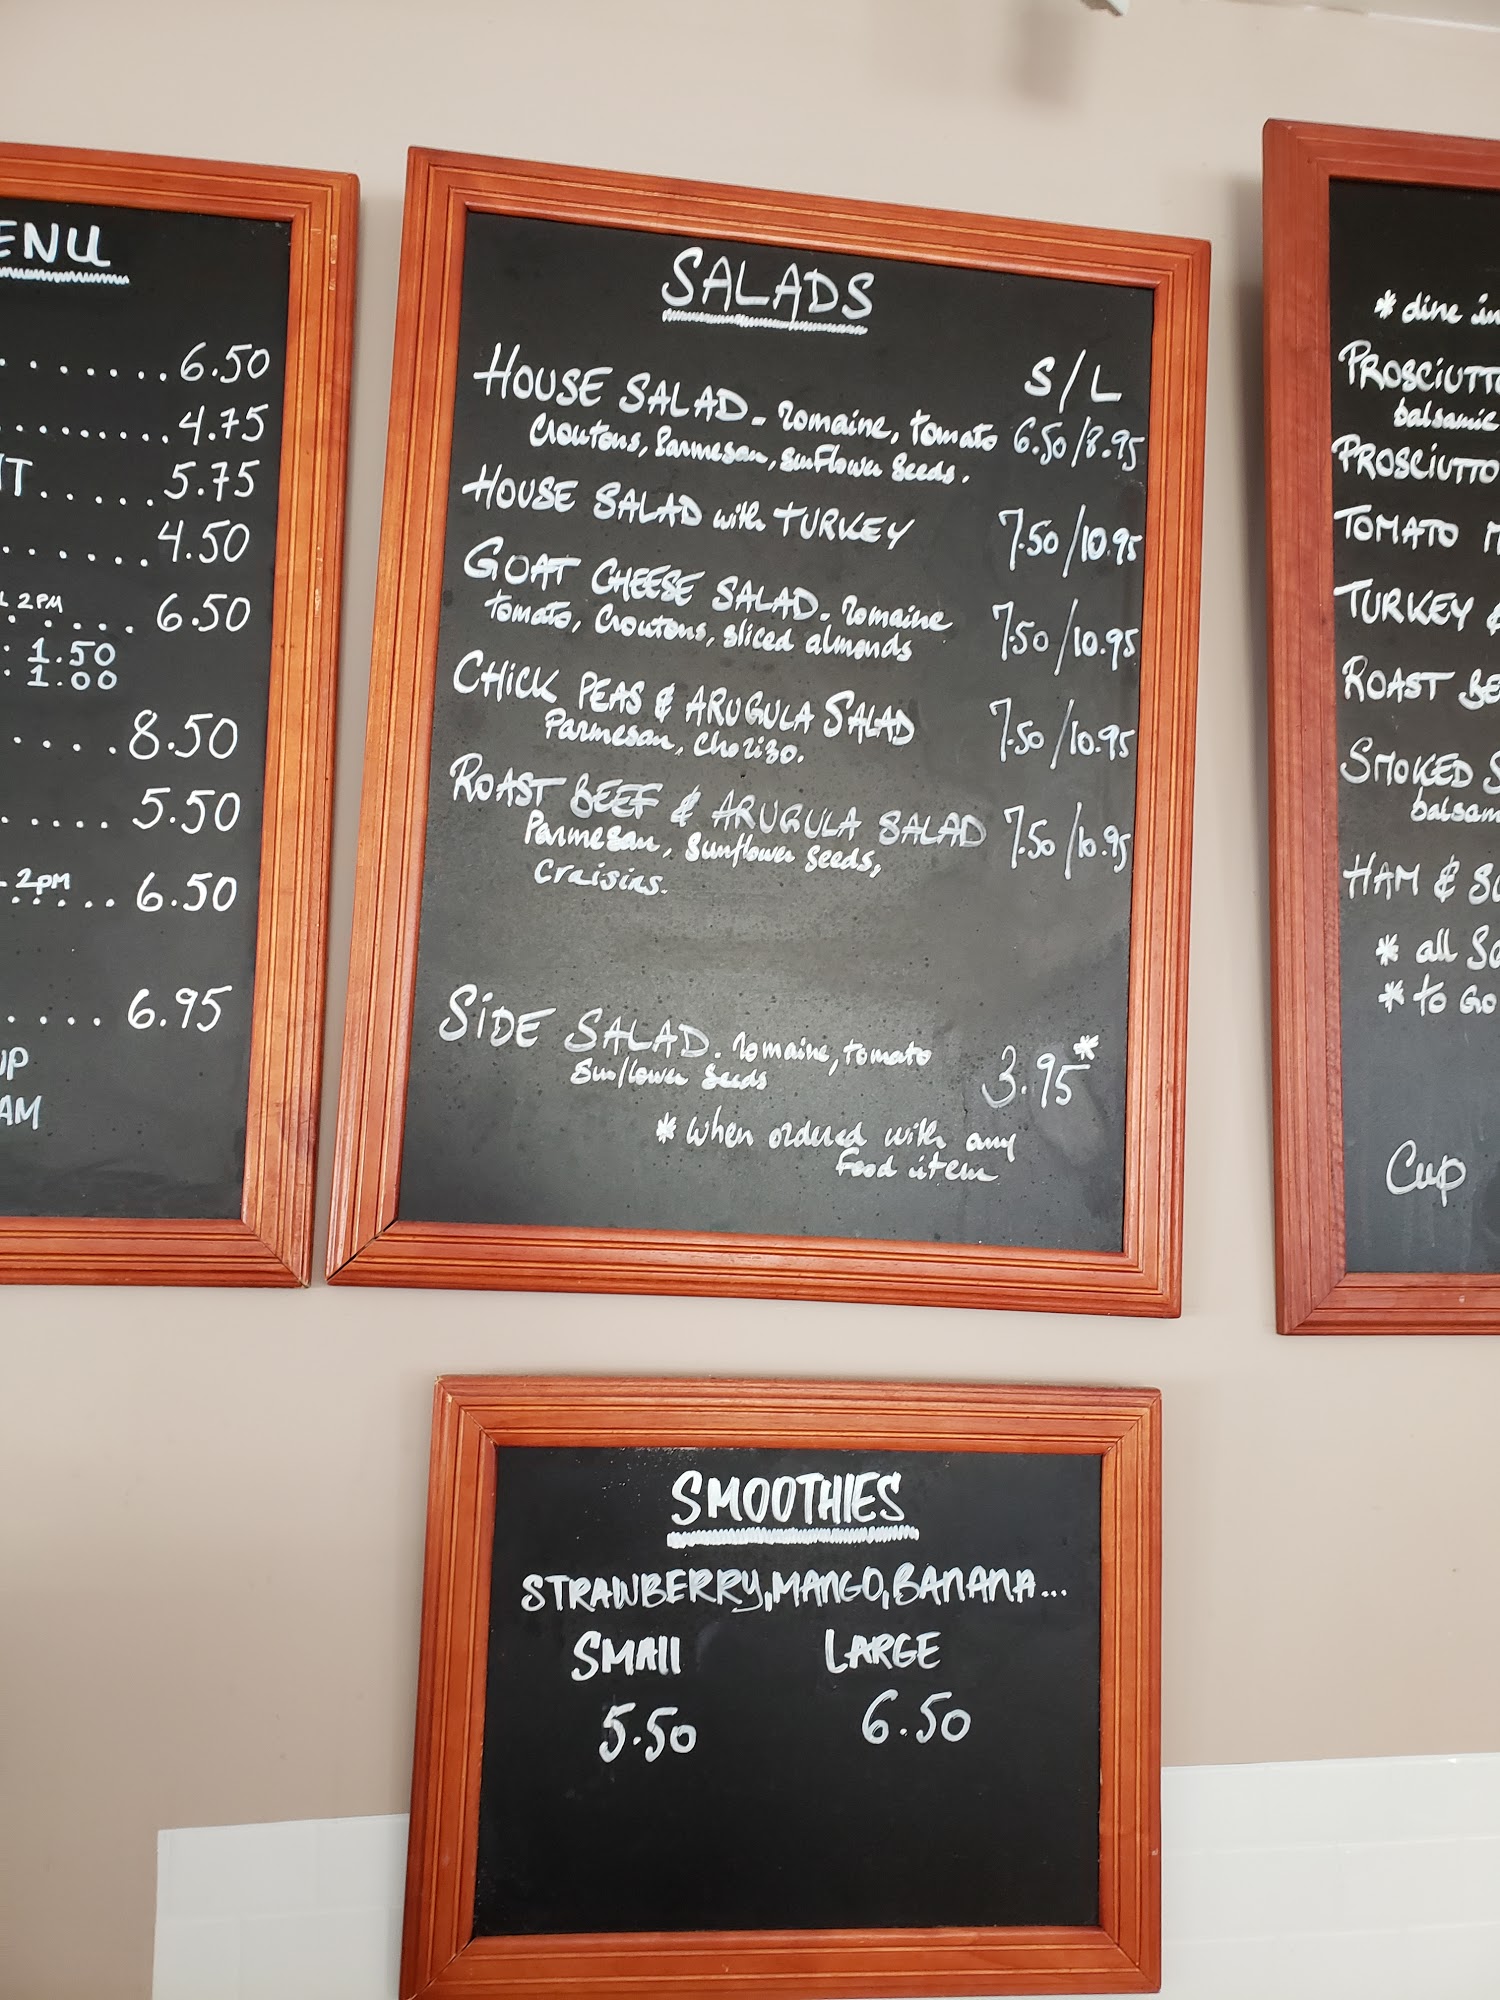 ENU
.......6.50
.........4.75
IT.....5.75
......4.50
2PM
..... 6.50
: 1.50
: 1.00
....8.50
.....5.50
2PM
..... 6.50
..... 6.95
UP
AM
SALADS
S/L
HOUSE SALAD - romaine, tomato 6.50/8.95
Croutons, Parmesan, sunflower seeds.
HOUSE SALAD with TURKEY 7.50/10.95
GOAT CHEESE SALAD - romaine
tomato, Croutons, sliced almonds 7.50/10.95
CHICK PEAS & ARUGULA SALAD
Parmesan, Chorizo. 7.50/10.95
ROAST BEEF & ARUGULA SALAD 7.50/10.95
Parmesan, sunflower seeds,
Craisins.
SIDE SALAD - romaine, tomato
sunflower seeds 3.95*
* when ordered with any
food item
* dine in
PROSCIUTTO
balsamic
PROSCIUTTO
TOMATO
TURKEY &
ROAST BE
SMOKED S
balsam
HAM &
* all
* to Go
Cup
SMOOTHIES
STRAWBERRY, MANGO, BANANA...
SMALL LARGE
5.50 6.50